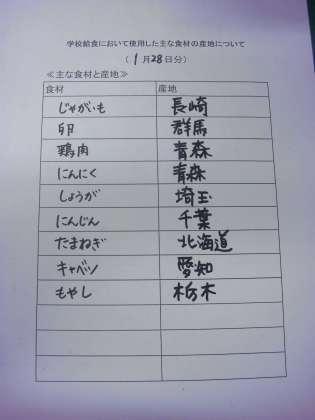 学校給食において使用した主な食材の産地について
(1月28日分)
≪主な食材と産地≫
食材 産地
じゃがいも 長崎
卵 群馬
鶏肉 青森
にんにく 青森
しょうが 埼玉
にんじん 千葉
たまねぎ 北海道
キャベツ 愛知
もやし 栃木